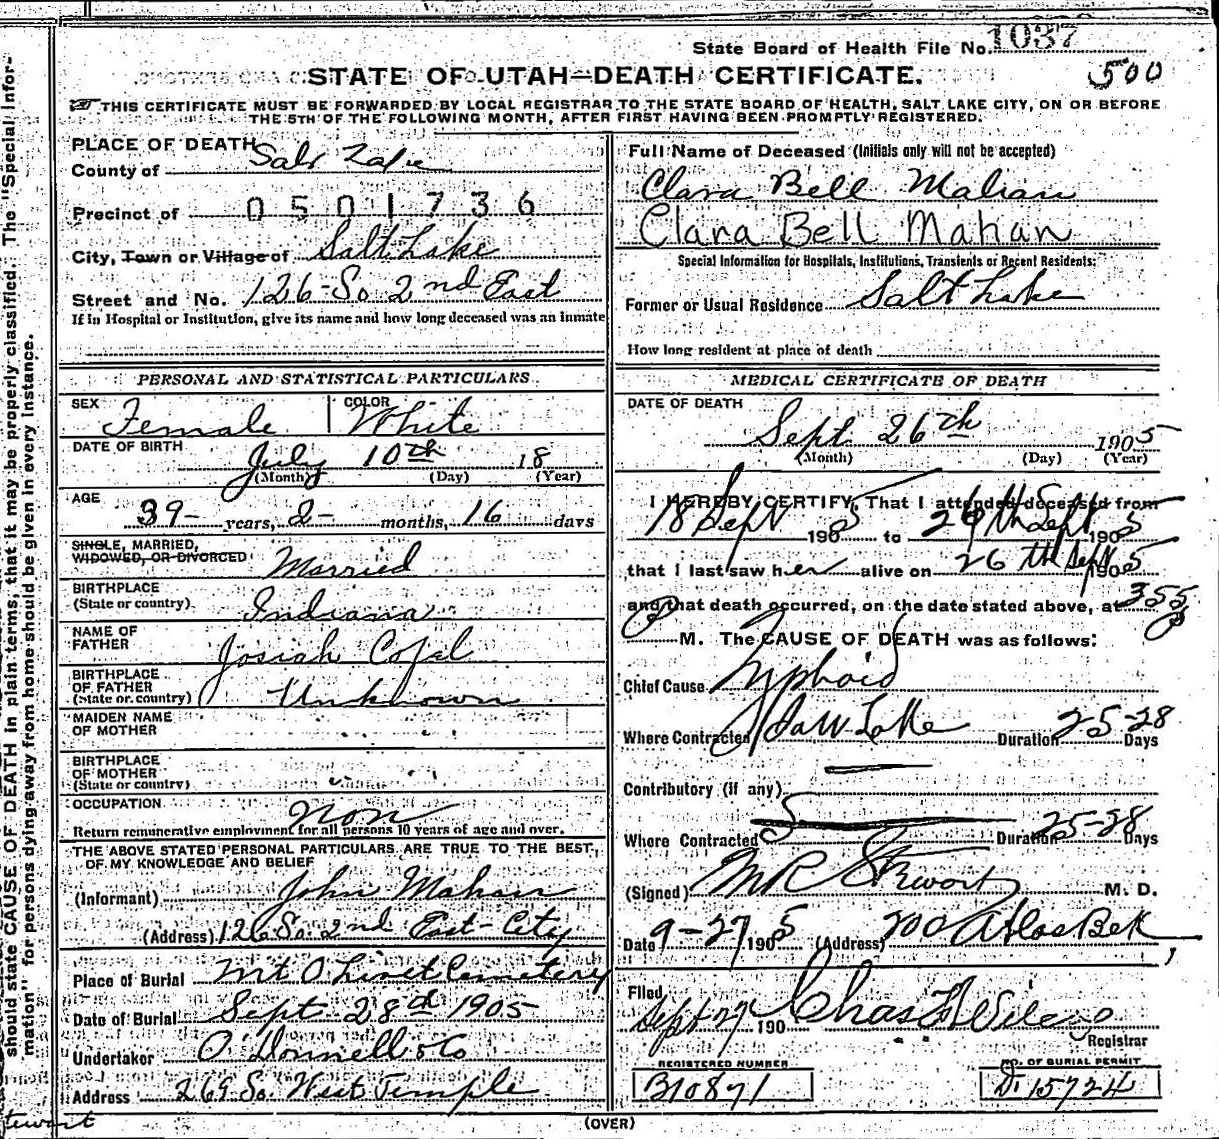 State Board of Health File No. 1037
500
STATE OF UTAH—DEATH CERTIFICATE.
THIS CERTIFICATE MUST BE FORWARDED BY LOCAL REGISTRAR TO THE STATE BOARD OF HEALTH, SALT LAKE CITY, ON OR BEFORE
THE 5TH OF THE FOLLOWING MONTH, AFTER FIRST HAVING BEEN PROMPTLY REGISTERED.
PLACE OF DEATH
County of Salt Lake
Precinct of 0501736
City, Town or Village of Salt Lake
Street and No. 126-So 2nd East
If in Hospital or Institution, give its name and how long deceased was an inmate
PERSONAL AND STATISTICAL PARTICULARS.
SEX Female COLOR White
DATE OF BIRTH July 10th 18
(Month) (Day) (Year)
AGE 39- years, 2- months, 16 days
SINGLE, MARRIED,
WIDOWED, OR DIVORCED Married
BIRTHPLACE
(State or country) Indiana
NAME OF
FATHER Josiah
BIRTHPLACE
OF FATHER
(State or country) Unknown
MAIDEN NAME
OF MOTHER
BIRTHPLACE
OF MOTHER
(State or country)
OCCUPATION Non
Return remunerative employment for all persons 10 years of age and over.
THE ABOVE STATED PERSONAL PARTICULARS ARE TRUE TO THE BEST
OF MY KNOWLEDGE AND BELIEF
(Informant) John Mahan
(Address) 126 So. 2nd East-City
Place of Burial Mt Olivet Cemetery
Date of Burial Sept 28th 1905
Undertaker O'Donnell & Co
Address 269 So. West Temple
Full Name of Deceased (Initials only will not be accepted)
Clara Bell Mahan
Clara Bell Mahan
Special Information for Hospitals, Institutions, Transients or Recent Residents:
Former or Usual Residence Salt Lake
How long resident at place of death
MEDICAL CERTIFICATE OF DEATH
DATE OF DEATH
Sept 26th 1905
(Month) (Day) (Year)
I HEREBY CERTIFY, That I attended deceased from
18 Sept 1905 to 26th Sept 1905
that I last saw her alive on 26th Sept 1905
and that death occurred, on the date stated above, at 355
P M. The CAUSE OF DEATH was as follows:
Chief Cause Typhoid
Where Contracted Salt Lake Duration 25-28 Days
Contributory (if any)
Where Contracted Duration 25-28 Days
(Signed) M R Stewart M. D.
Date 9-27 1905 (Address) 200 Atlas Blk
Filed
Sept 27 190 Chas
Registrar
REGISTERED NUMBER
B10871
NO. OF BURIAL PERMIT
D. 15724
(OVER)
should state CAUSE OF DEATH in plain terms, that it may be properly classified. The "Special Infor-
mation" for persons dying away from home should be given in every instance.